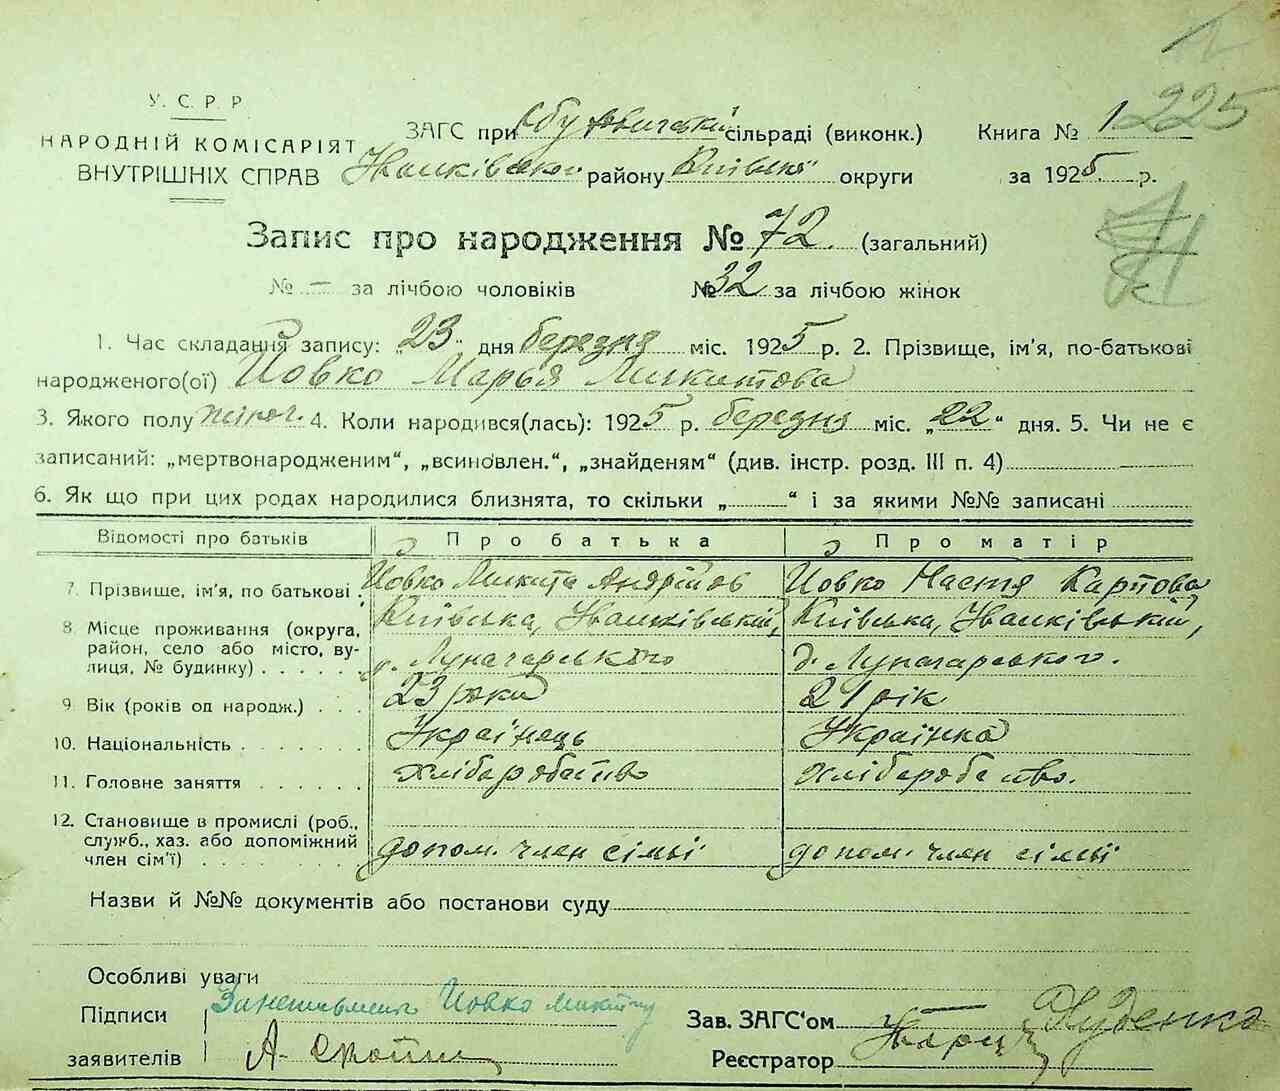 225
У. С. Р. Р
НАРОДНІЙ КОМІСАРІЯТ
ВНУТРІШНІХ СПРАВ
ЗАГС при сільраді (виконк.) Книга № 1
Іванківського району Київської округи за 1925 р.
Запис про народження № 72. (загальний)
№ — за лічбою чоловіків № 32 за лічбою жінок
1. Час складання запису: „23" дня березня міс. 1925 р. 2. Прізвище, ім'я, по-батькові
народженого(ої) Йовко Марья Микитова
3. Якого полу жіноч. 4. Коли народився(лась): 1925 р. березня міс. „22" дня. 5. Чи не є
записаний: „мертвонародженим", „всиновлен.", „знайденям" (див. інстр. розд. III п. 4)
6. Як що при цих родах народилися близнята, то скільки „ " і за якими №№ записані
Відомості про батьків Про батька Про матір
7. Прізвище, ім'я, по батькові . Йовко Микита Андрійов Йовко Настя Карпова
8. Місце проживання (округа, район, село або місто, вулиця, № будинку) . . . . . Київська, Іванківський, Луначарського Київська, Іванківський, д. Луначарського.
9. Вік (років од народж.) . . . 23 роки 21 рік
10. Національність . . . . . . . Українець Українка
11. Головне заняття . . . . . . Хліборобство Хліборобство.
12. Становище в промислі (роб., служб., хаз. або допоміжний член сім'ї) . . . . . . . допом. член сімьі допом. член сімьі
Назви й №№ документів або постанови суду
Особливі уваги
Підписи Йовко Микиту
заявителів А.
Зав. ЗАГС'ом Руденко
Реєстратор